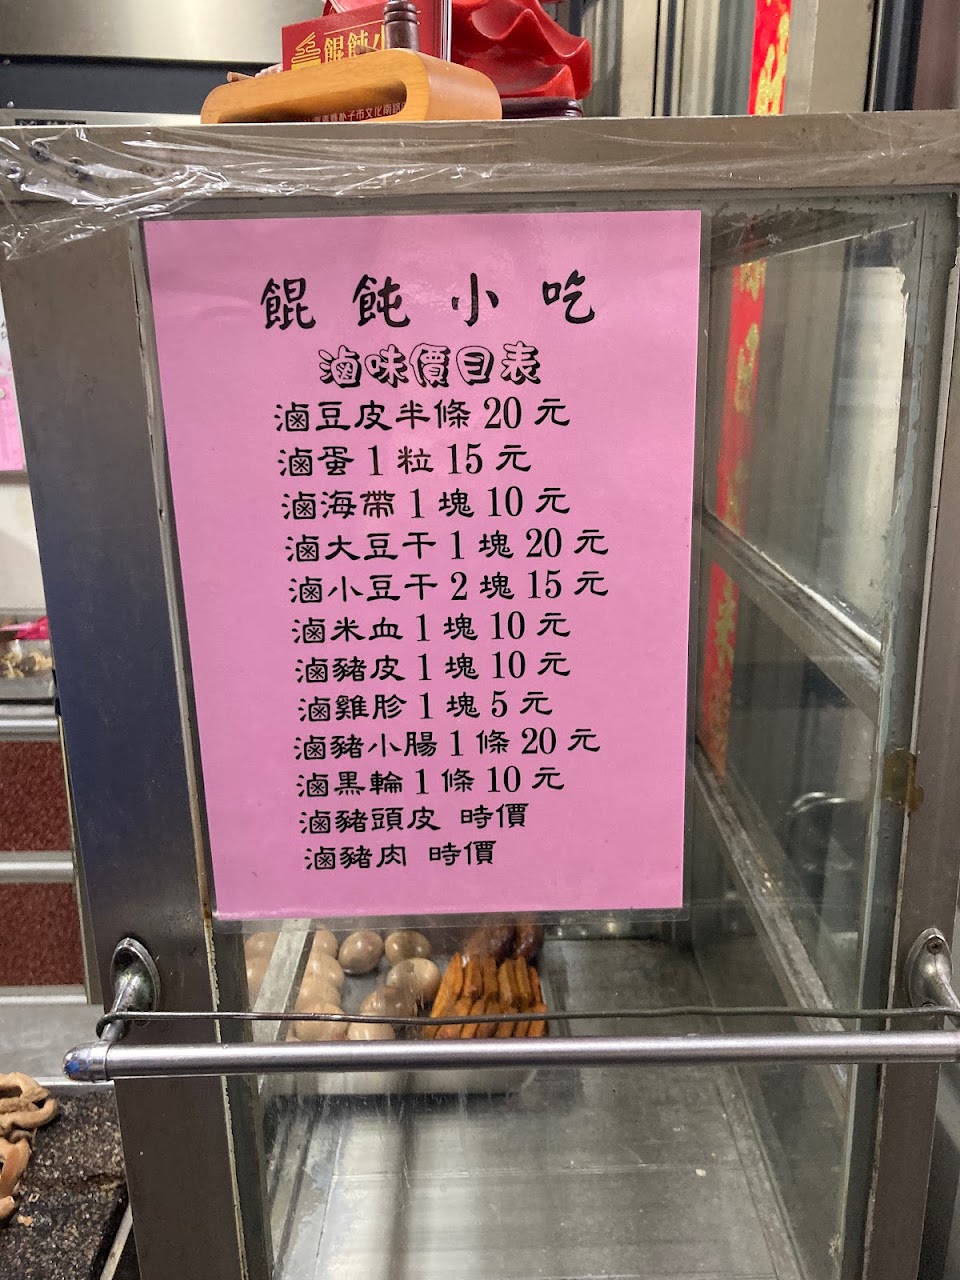 餛飩小
朴子市文化南路
餛飩小吃
滷味價目表
滷豆皮半條 20 元
滷蛋 1 粒 15 元
滷海帶 1 塊 10 元
滷大豆干 1 塊 20 元
滷小豆干 2 塊 15 元
滷米血 1 塊 10 元
滷豬皮 1 塊 10 元
滷雞胗 1 塊 5 元
滷豬小腸 1 條 20 元
滷黑輪 1 條 10 元
滷豬頭皮 時價
滷豬肉 時價